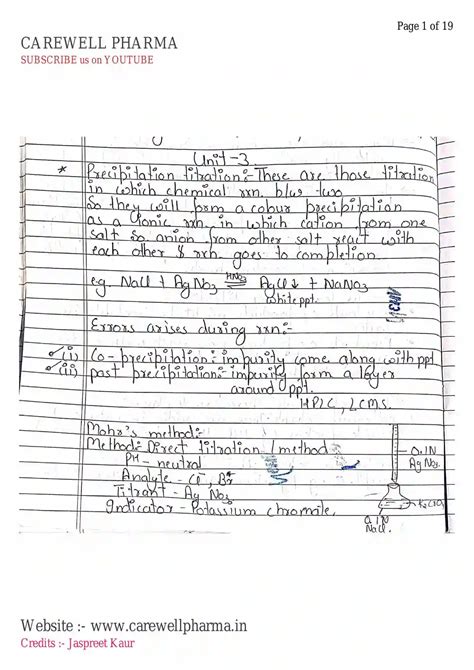 Page 1 of 19
CAREWELL PHARMA
SUBSCRIBE us on YOUTUBE
Unit-3
* Precipitation titration:- These are those titration
in which chemical rxn. b/w two
So they will form a colour precipitation
as a ionic rxn. in which cation from one
salt so anion from other salt react with
each other & rxn. goes to completion
eg. NaCl + AgNO3 HNO3 ⇌ AgCl↓ + NaNO3
white ppt.
Errors arises during rxn:-
(i) Co-precipitation: impurity come along with ppt
(ii) past precipitation: impurity form a layer
around ppt.
HPLC, LCMS.
Mohr's method:-
Method:- Direct titration / method
PH - neutral
Analyte - Cl-, Br-
Titrant - Ag NO3
Indicator - Potassium chromate.
0.1N
Ag NO3
0.1N
NaCl.
Website :- www.carewellpharma.in
Credits :- Jaspreet Kaur